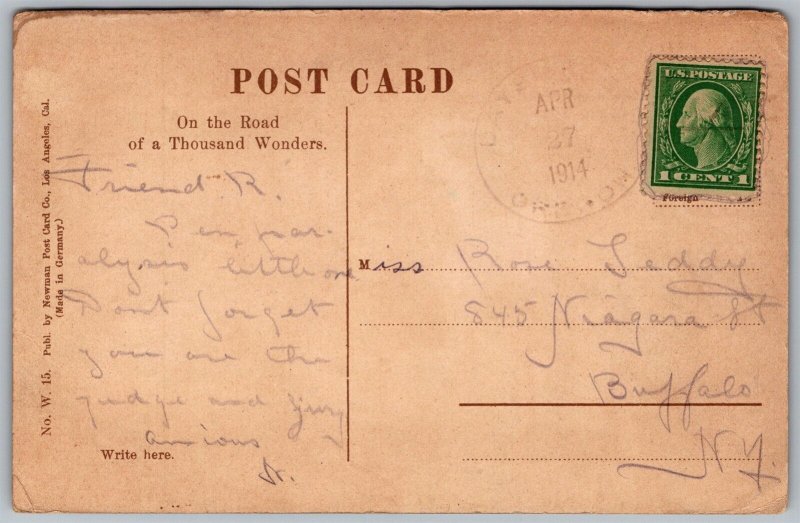 POST CARD
On the Road
of a Thousand Wonders.
No. W. 15. Publ. by Newman Post Card Co., Los Angeles, Cal.
(Made in Germany.)
Friend R.
Pen par-
alysis little one
Dont forget
you are the
judge and jury
anxious
Write here.
APR
27
1914
U.S. POSTAGE
1 CENT 1
Foreign
Miss Rose Leddy
845 Niagara St
Buffalo
N.Y.